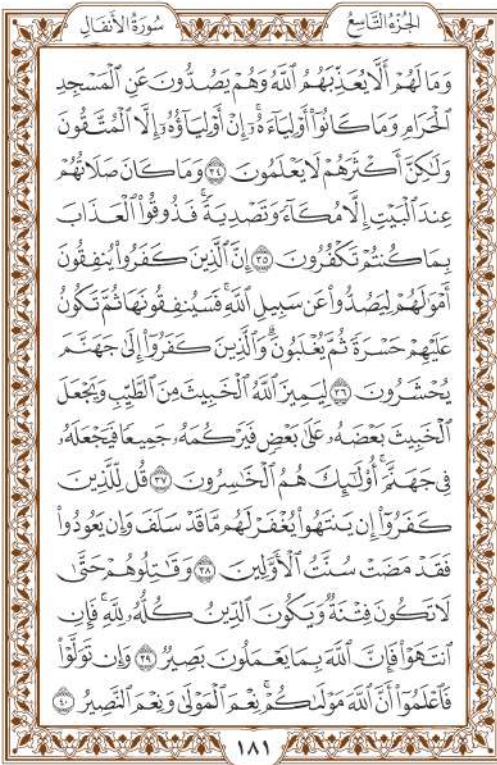 الجُزْءُ التَّاسِعُ
سُورَةُ الأَنفَال
وَمَا لَهُمْ أَلَّا يُعَذِّبَهُمُ ٱللَّهُ وَهُمْ يَصُدُّونَ عَنِ ٱلْمَسْجِدِ
ٱلْحَرَامِ وَمَا كَانُوٓا۟ أَوْلِيَآءَهُۥٓۚ إِنْ أَوْلِيَآؤُهُۥٓ إِلَّا ٱلْمُتَّقُونَ
وَلَٰكِنَّ أَكْثَرَهُمْ لَا يَعْلَمُونَ ٣٤ وَمَا كَانَ صَلَاتُهُمْ
عِندَ ٱلْبَيْتِ إِلَّا مُكَآءً وَتَصْدِيَةًۚ فَذُوقُوا۟ ٱلْعَذَابَ
بِمَا كُنتُمْ تَكْفُرُونَ ٣٥ إِنَّ ٱلَّذِينَ كَفَرُوا۟ يُنفِقُونَ
أَمْوَٰلَهُمْ لِيَصُدُّوا۟ عَن سَبِيلِ ٱللَّهِۚ فَسَيُنفِقُونَهَا ثُمَّ تَكُونُ
عَلَيْهِمْ حَسْرَةً ثُمَّ يُغْلَبُونَۗ وَٱلَّذِينَ كَفَرُوٓا۟ إِلَىٰ جَهَنَّمَ
يُحْشَرُونَ ٣٦ لِيَمِيزَ ٱللَّهُ ٱلْخَبِيثَ مِنَ ٱلطَّيِّبِ وَيَجْعَلَ
ٱلْخَبِيثَ بَعْضَهُۥ عَلَىٰ بَعْضٍ فَيَرْكُمَهُۥ جَمِيعًا فَيَجْعَلَهُۥ
فِى جَهَنَّمَۚ أُو۟لَٰٓئِكَ هُمُ ٱلْخَٰسِرُونَ ٣٧ قُل لِّلَّذِينَ
كَفَرُوٓا۟ إِن يَنتَهُوا۟ يُغْفَرْ لَهُم مَّا قَدْ سَلَفَ وَإِن يَعُودُوا۟
فَقَدْ مَضَتْ سُنَّتُ ٱلْأَوَّلِينَ ٣٨ وَقَٰتِلُوهُمْ حَتَّىٰ
لَا تَكُونَ فِتْنَةٌ وَيَكُونَ ٱلدِّينُ كُلُّهُۥ لِلَّهِۚ فَإِنِ
ٱنتَهَوْا۟ فَإِنَّ ٱللَّهَ بِمَا يَعْمَلُونَ بَصِيرٌ ٣٩ وَإِن تَوَلَّوْا۟
فَٱعْلَمُوٓا۟ أَنَّ ٱللَّهَ مَوْلَىٰكُمْۚ نِعْمَ ٱلْمَوْلَىٰ وَنِعْمَ ٱلنَّصِيرُ ٤٠
١٨١